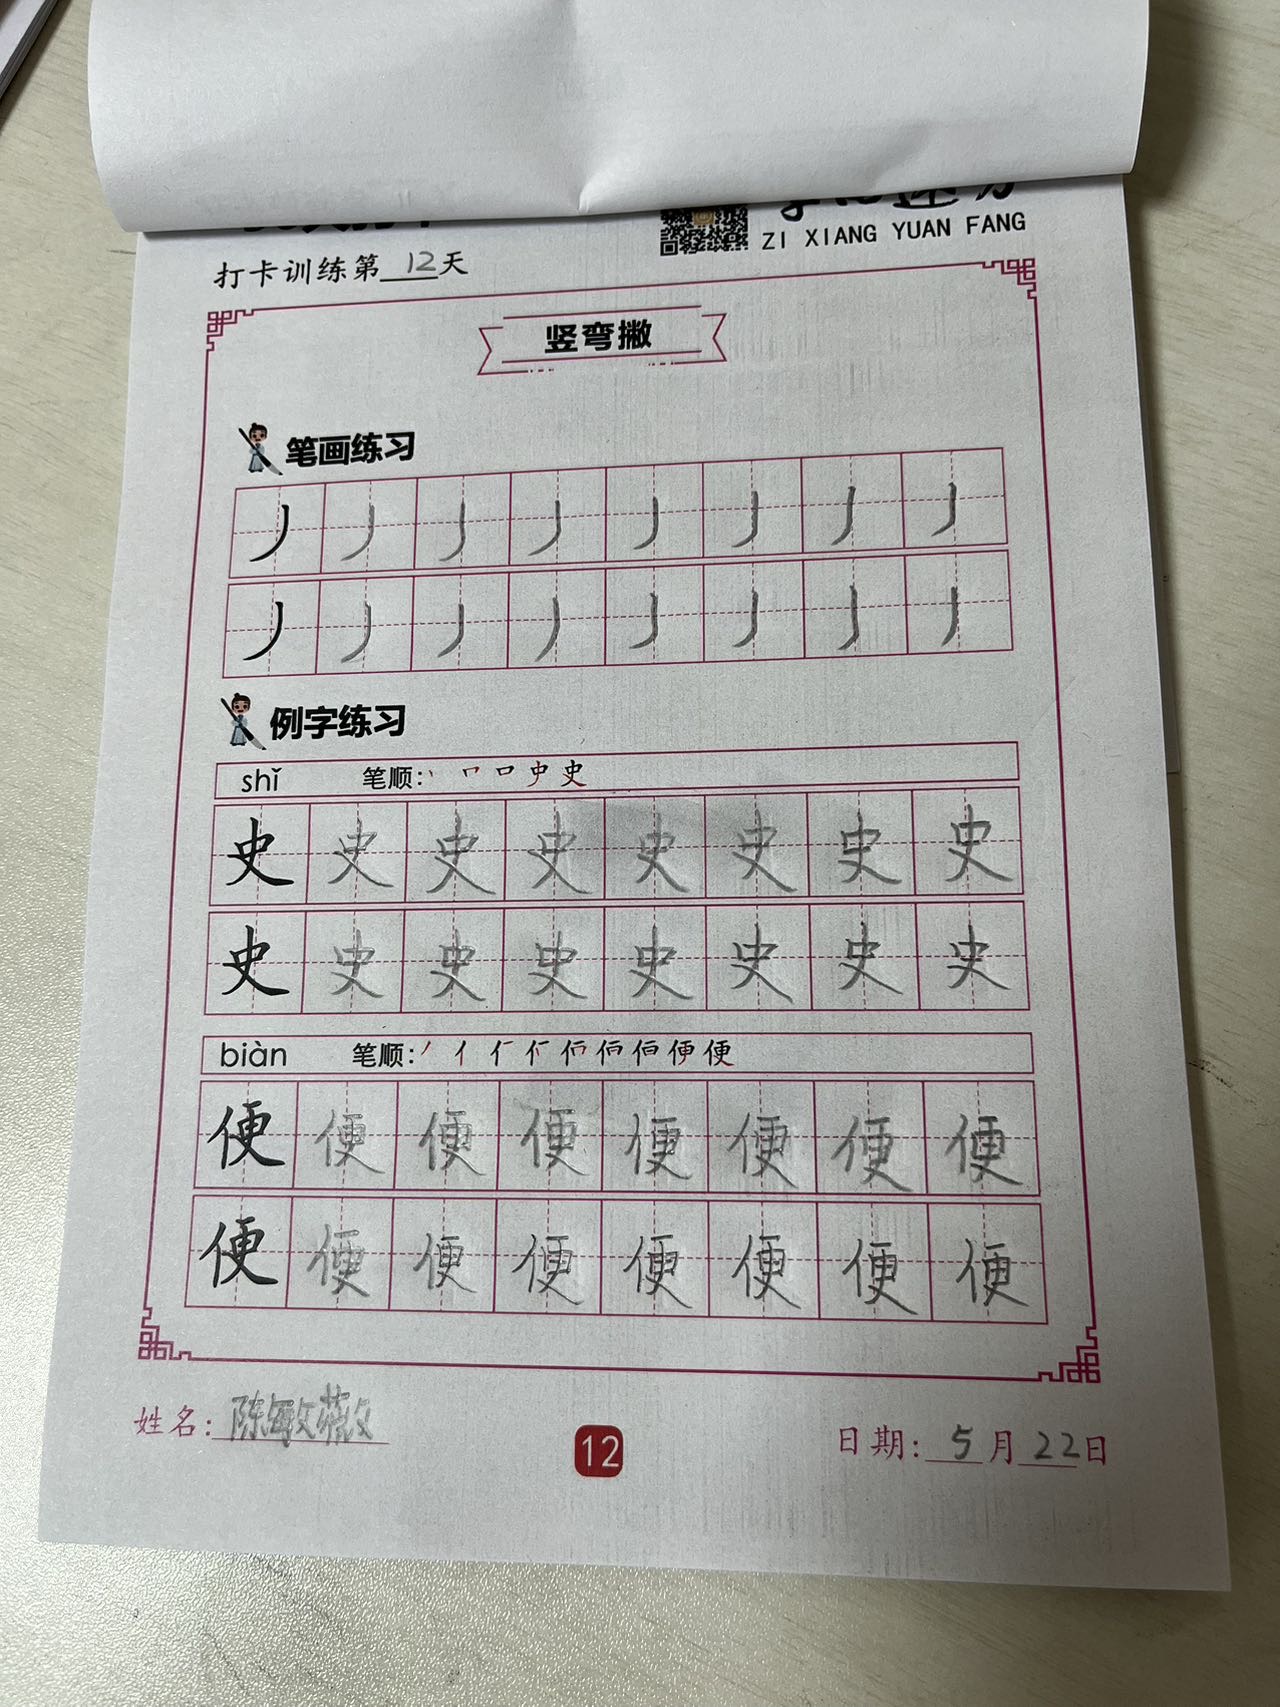 ZI XIANG YUAN FANG
打卡训练第 12 天
竖弯撇
笔画练习
丿 丿 丿 丿 丿 丿 丿 丿
丿 丿 丿 丿 丿 丿 丿 丿
例字练习
shǐ 笔顺:
史 史 史 史 史 史 史 史
史 史 史 史 史 史 史 史
biàn 笔顺:
便 便 便 便 便 便 便 便
便 便 便 便 便 便 便 便
姓名: 陈
12
日期: 5 月 22 日